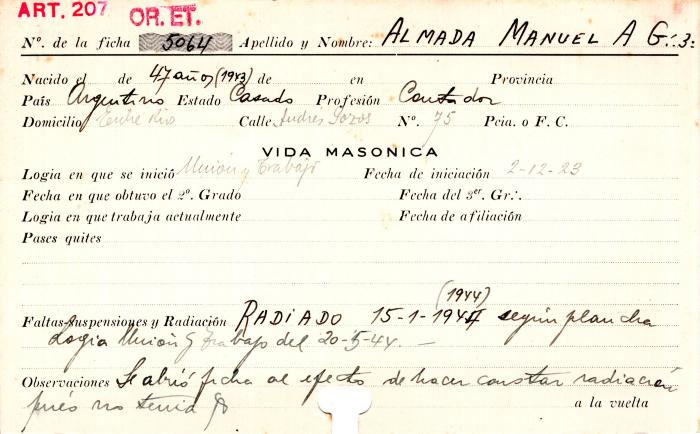 ART. 207 OR. ET.
Nº. de la ficha 5064 Apellido y Nombre: ALMADA MANUEL A G∴ 3∴
Nacido el de 47 años (1943) de en Provincia
País Argentino Estado Casado Profesión Contador
Domicilio Entre Rio Calle Andres Pozos Nº. 75 Pcia. o F. C.
VIDA MASONICA
Logia en que se inició Unión y Trabajo Fecha de iniciación 2-12-23
Fecha en que obtuvo el 2º. Grado Fecha del 3er. Gr∴
Logia en que trabaja actualmente Fecha de afiliación
Pases quites
(1944)
Faltas-Suspensiones y Radiación RADIADO 15-1-1944 según plancha
Logia Unión y Trabajo del 20-5-44. —
Observaciones Se abrió ficha al efecto de hacer constar radiación
pués no tenia
a la vuelta